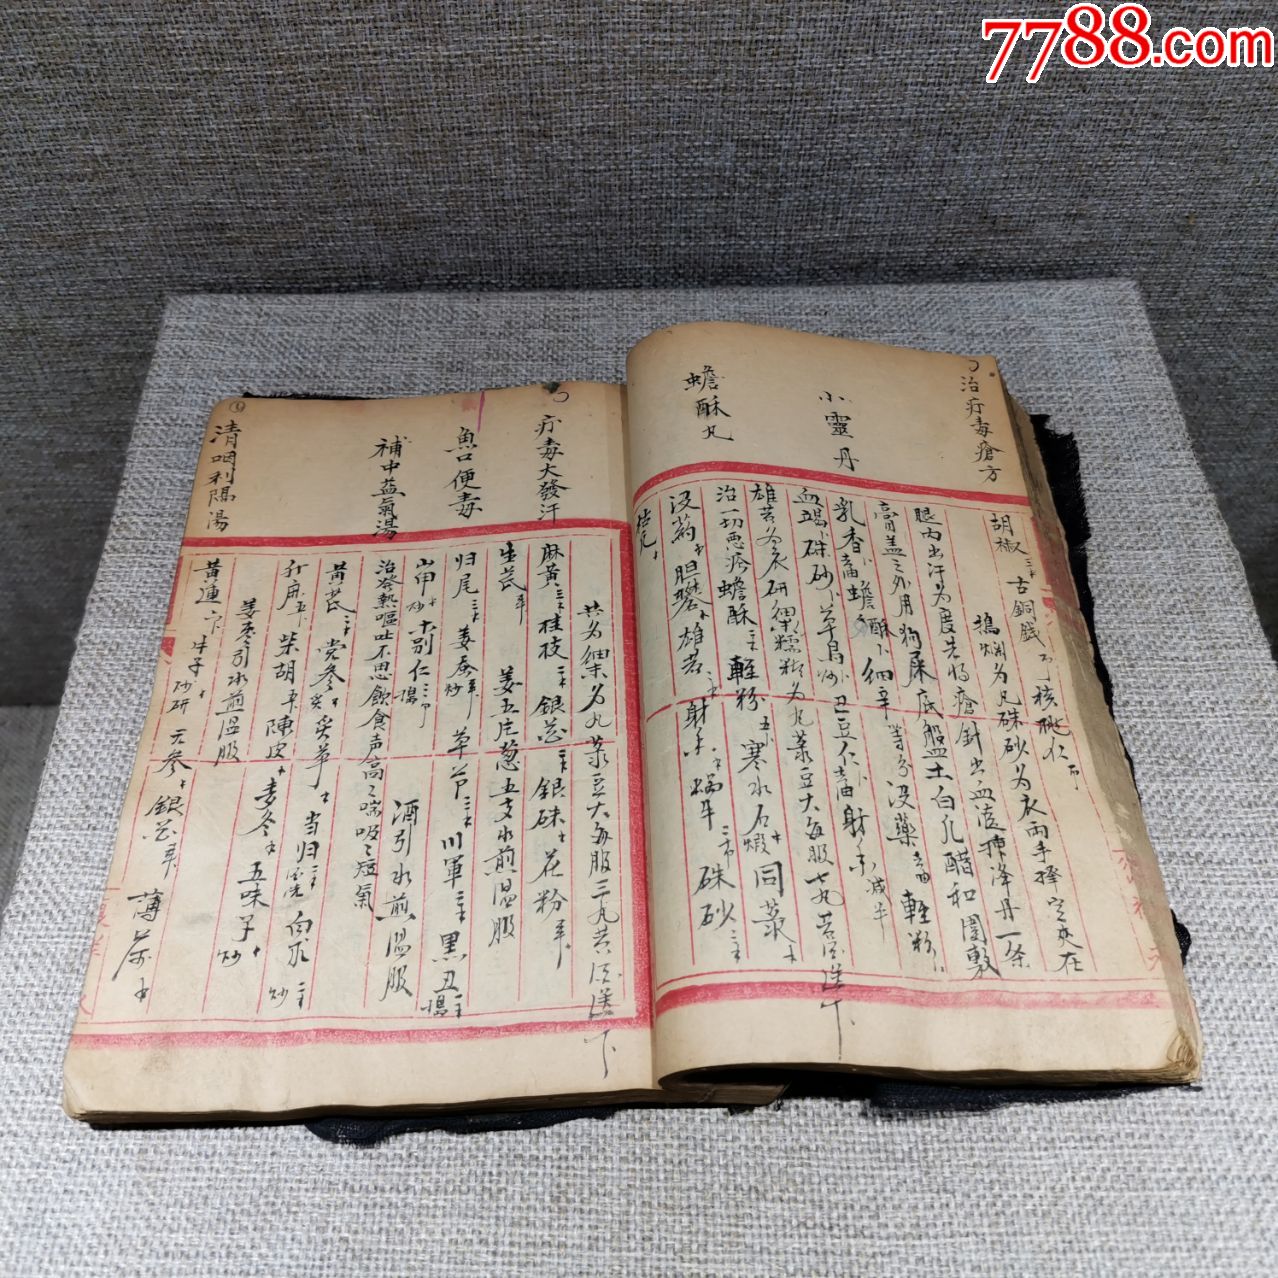 7788.com
治疔毒瘡方
胡椒 古銅錢 核桃仁
搗爛为丸硃砂为衣两手擇定夾在
腿内出汗为度先将瘡針出血後
蓋之外用狗屎底盤土白礬醋和圍敷
小靈丹
乳香 蟾酥 細辛 等分 没藥 輕粉
血竭 硃砂 草烏炒 丑豆仁 射香减半
雄黃为衣研細糯糊为丸菉豆大每服七丸黃酒送下
蟾酥丸
治一切悪疮蟾酥 輕粉 寒水石煅 同菉
没药 胆礬 雄黃 射香 蝸牛 硃砂
枯凡
共为細末为丸菉豆大每服三丸黃酒送下
疔毒大發汗
麻黃 桂枝 銀花 銀硃 花粉
生芪 姜五片葱五支水煎温服
魚口便毒
归尾 姜蚕炒 草节 川軍 黑丑
山甲炒 木别仁 酒引水煎温服
補中益氣湯
治發熱嘔吐不思飲食声高喘吸短氣
黃芪 党参 炙草 当归 白术炒
升麻 柴胡 陳皮 麦冬 五味子炒
姜枣引水煎温服
清咽利膈湯
黃連 牛子炒研 元参 銀花 薄荷